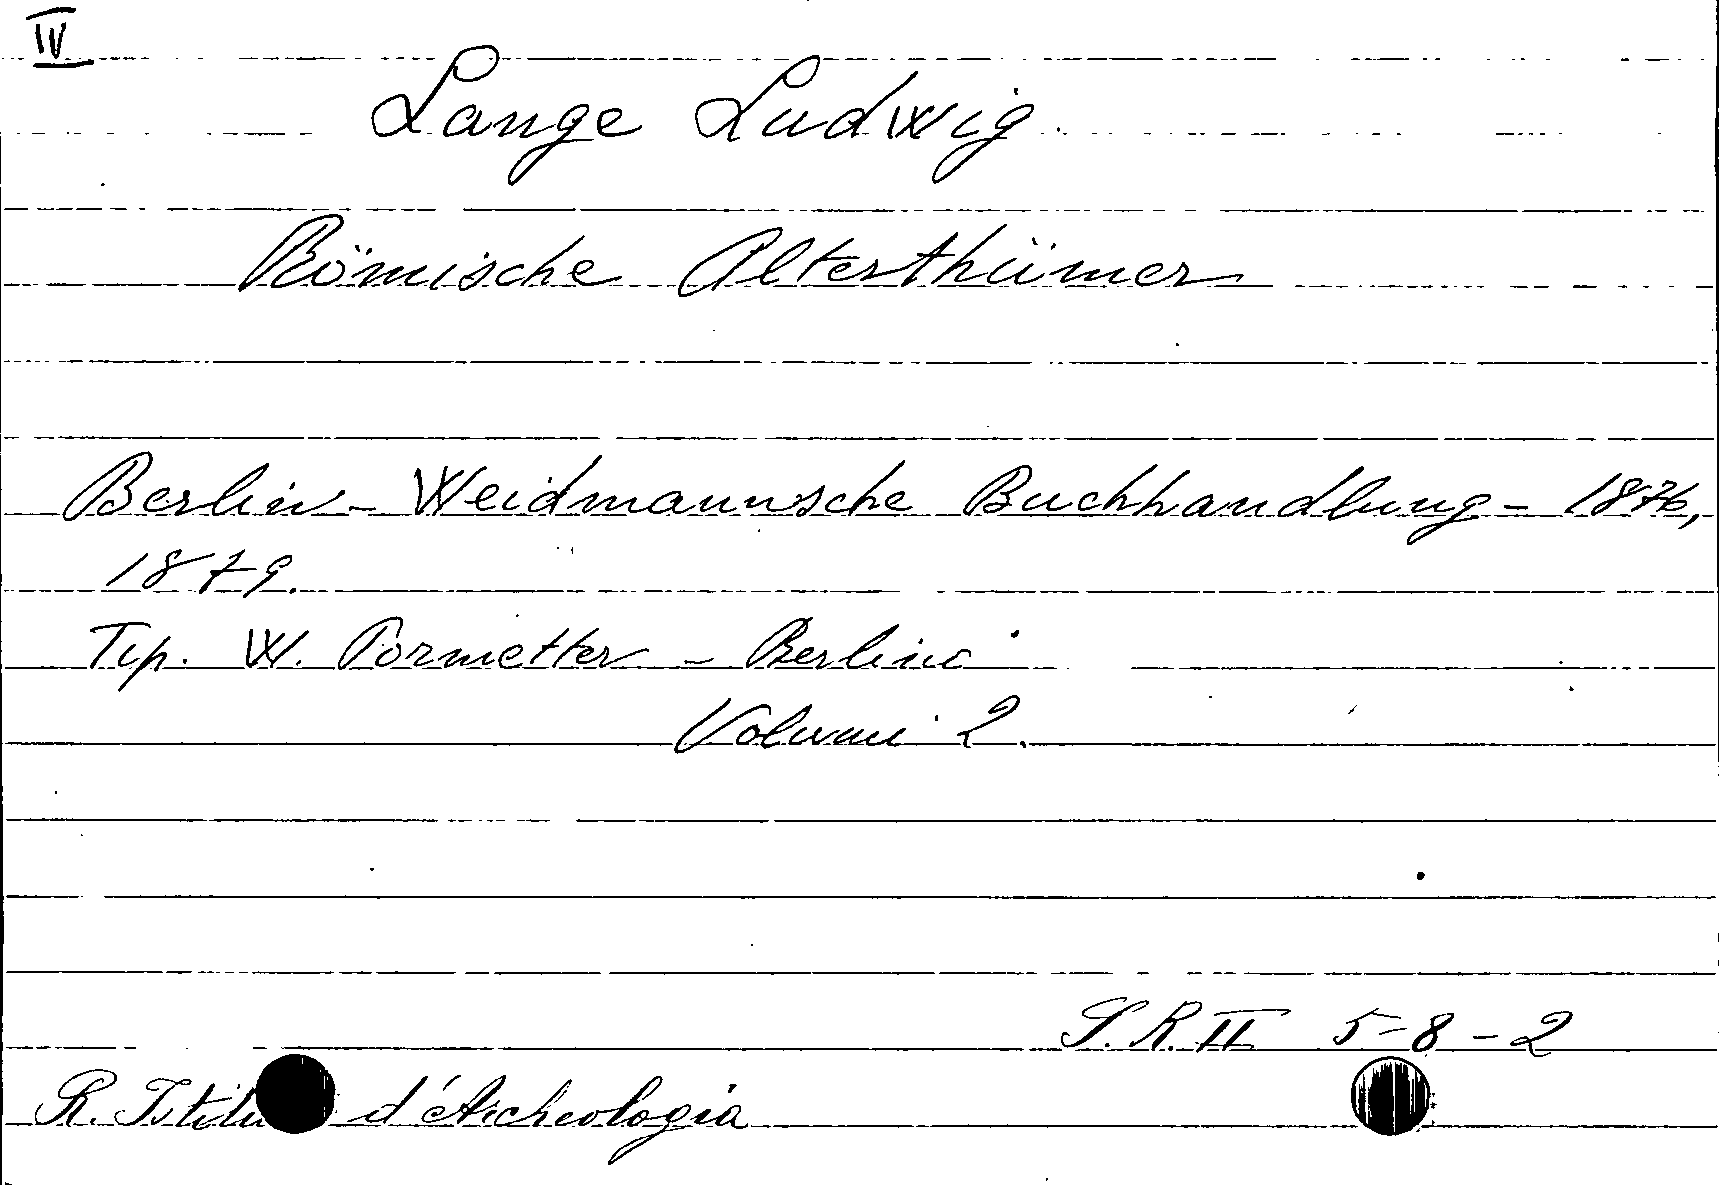 IV
Lange Ludwig
Römische Alterthümer
Berlin - Weidmannsche Buchhandlung - 1876,
1879.
Tip. W. Pormetter - Berlino
Volumi 2.
S. R. II 5-8-2
R. Istitu d'Archeologia